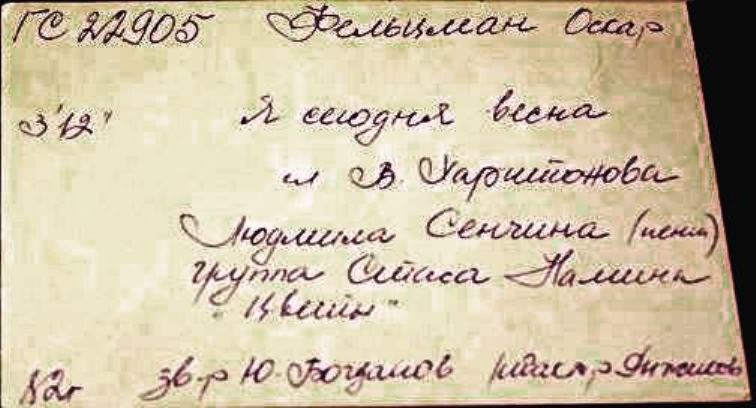 ГС 22905 Фельцман Оскар
3'12" Я сегодня весна
сл В. Харитонова
Людмила Сенчина (пение)
группа Стаса Намина
"Цветы"
82г зв.р Ю. Богданов